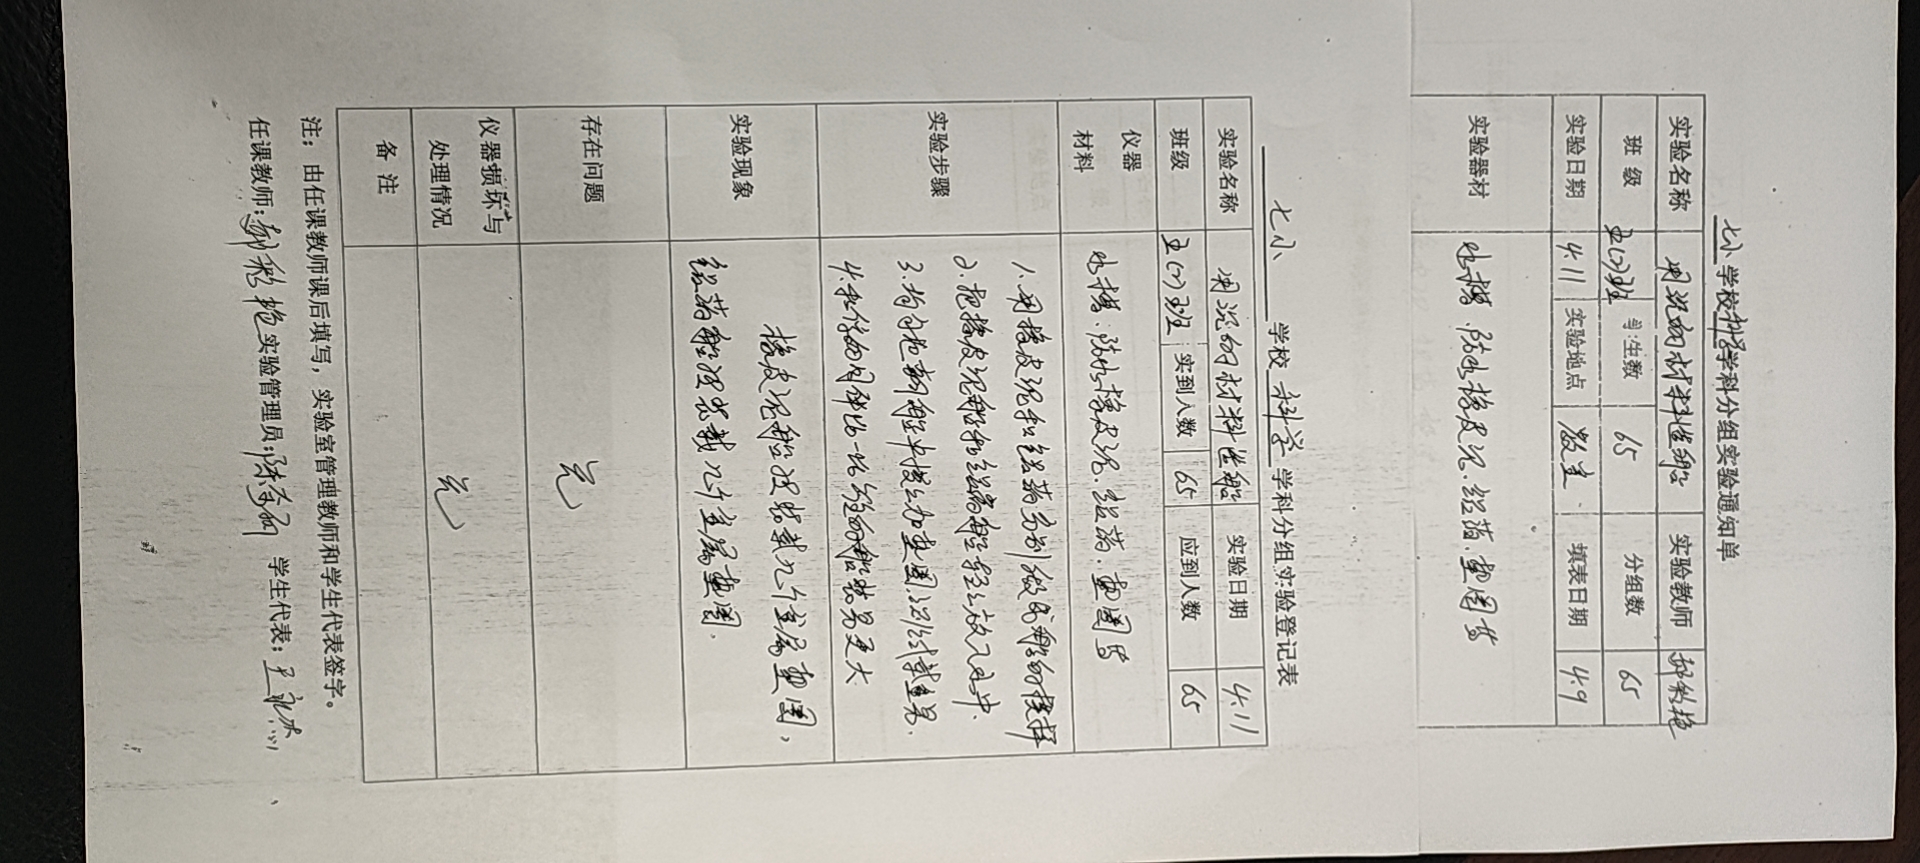 七小学校科学学科分组实验通知单
实验名称 用沉的材料造船 实验教师
班级 五(7)班 学生数 65 分组数 65
实验日期 4.11 实验地点 教室 填表日期 4.9
实验器材 水槽.橡皮泥.铝箔.垫圈等
七小 学校 科学 学科分组实验登记表
实验名称 用沉的材料造船 实验日期 4.11
班级 五(7)班 实到人数 65 应到人数 65
仪器
材料 水槽.橡皮泥.铝箔.垫圈等
实验步骤 1.用橡皮泥和铝箔分别做成船的模样
2.把橡皮泥船和铝箔船轻轻放入水中.
3.均匀地向船中慢慢加垫圈,记录载重量.
4.和你的同伴比一比,谁的船装易更大
实验现象 橡皮泥船没装载几个金属垫圈,
铝箔船没装载几个金属垫圈.
存在问题 无
仪器损坏与
处理情况 无
备注
注：由任课教师课后填写，实验室管理教师和学生代表签字。
任课教师: 实验管理员: 学生代表: